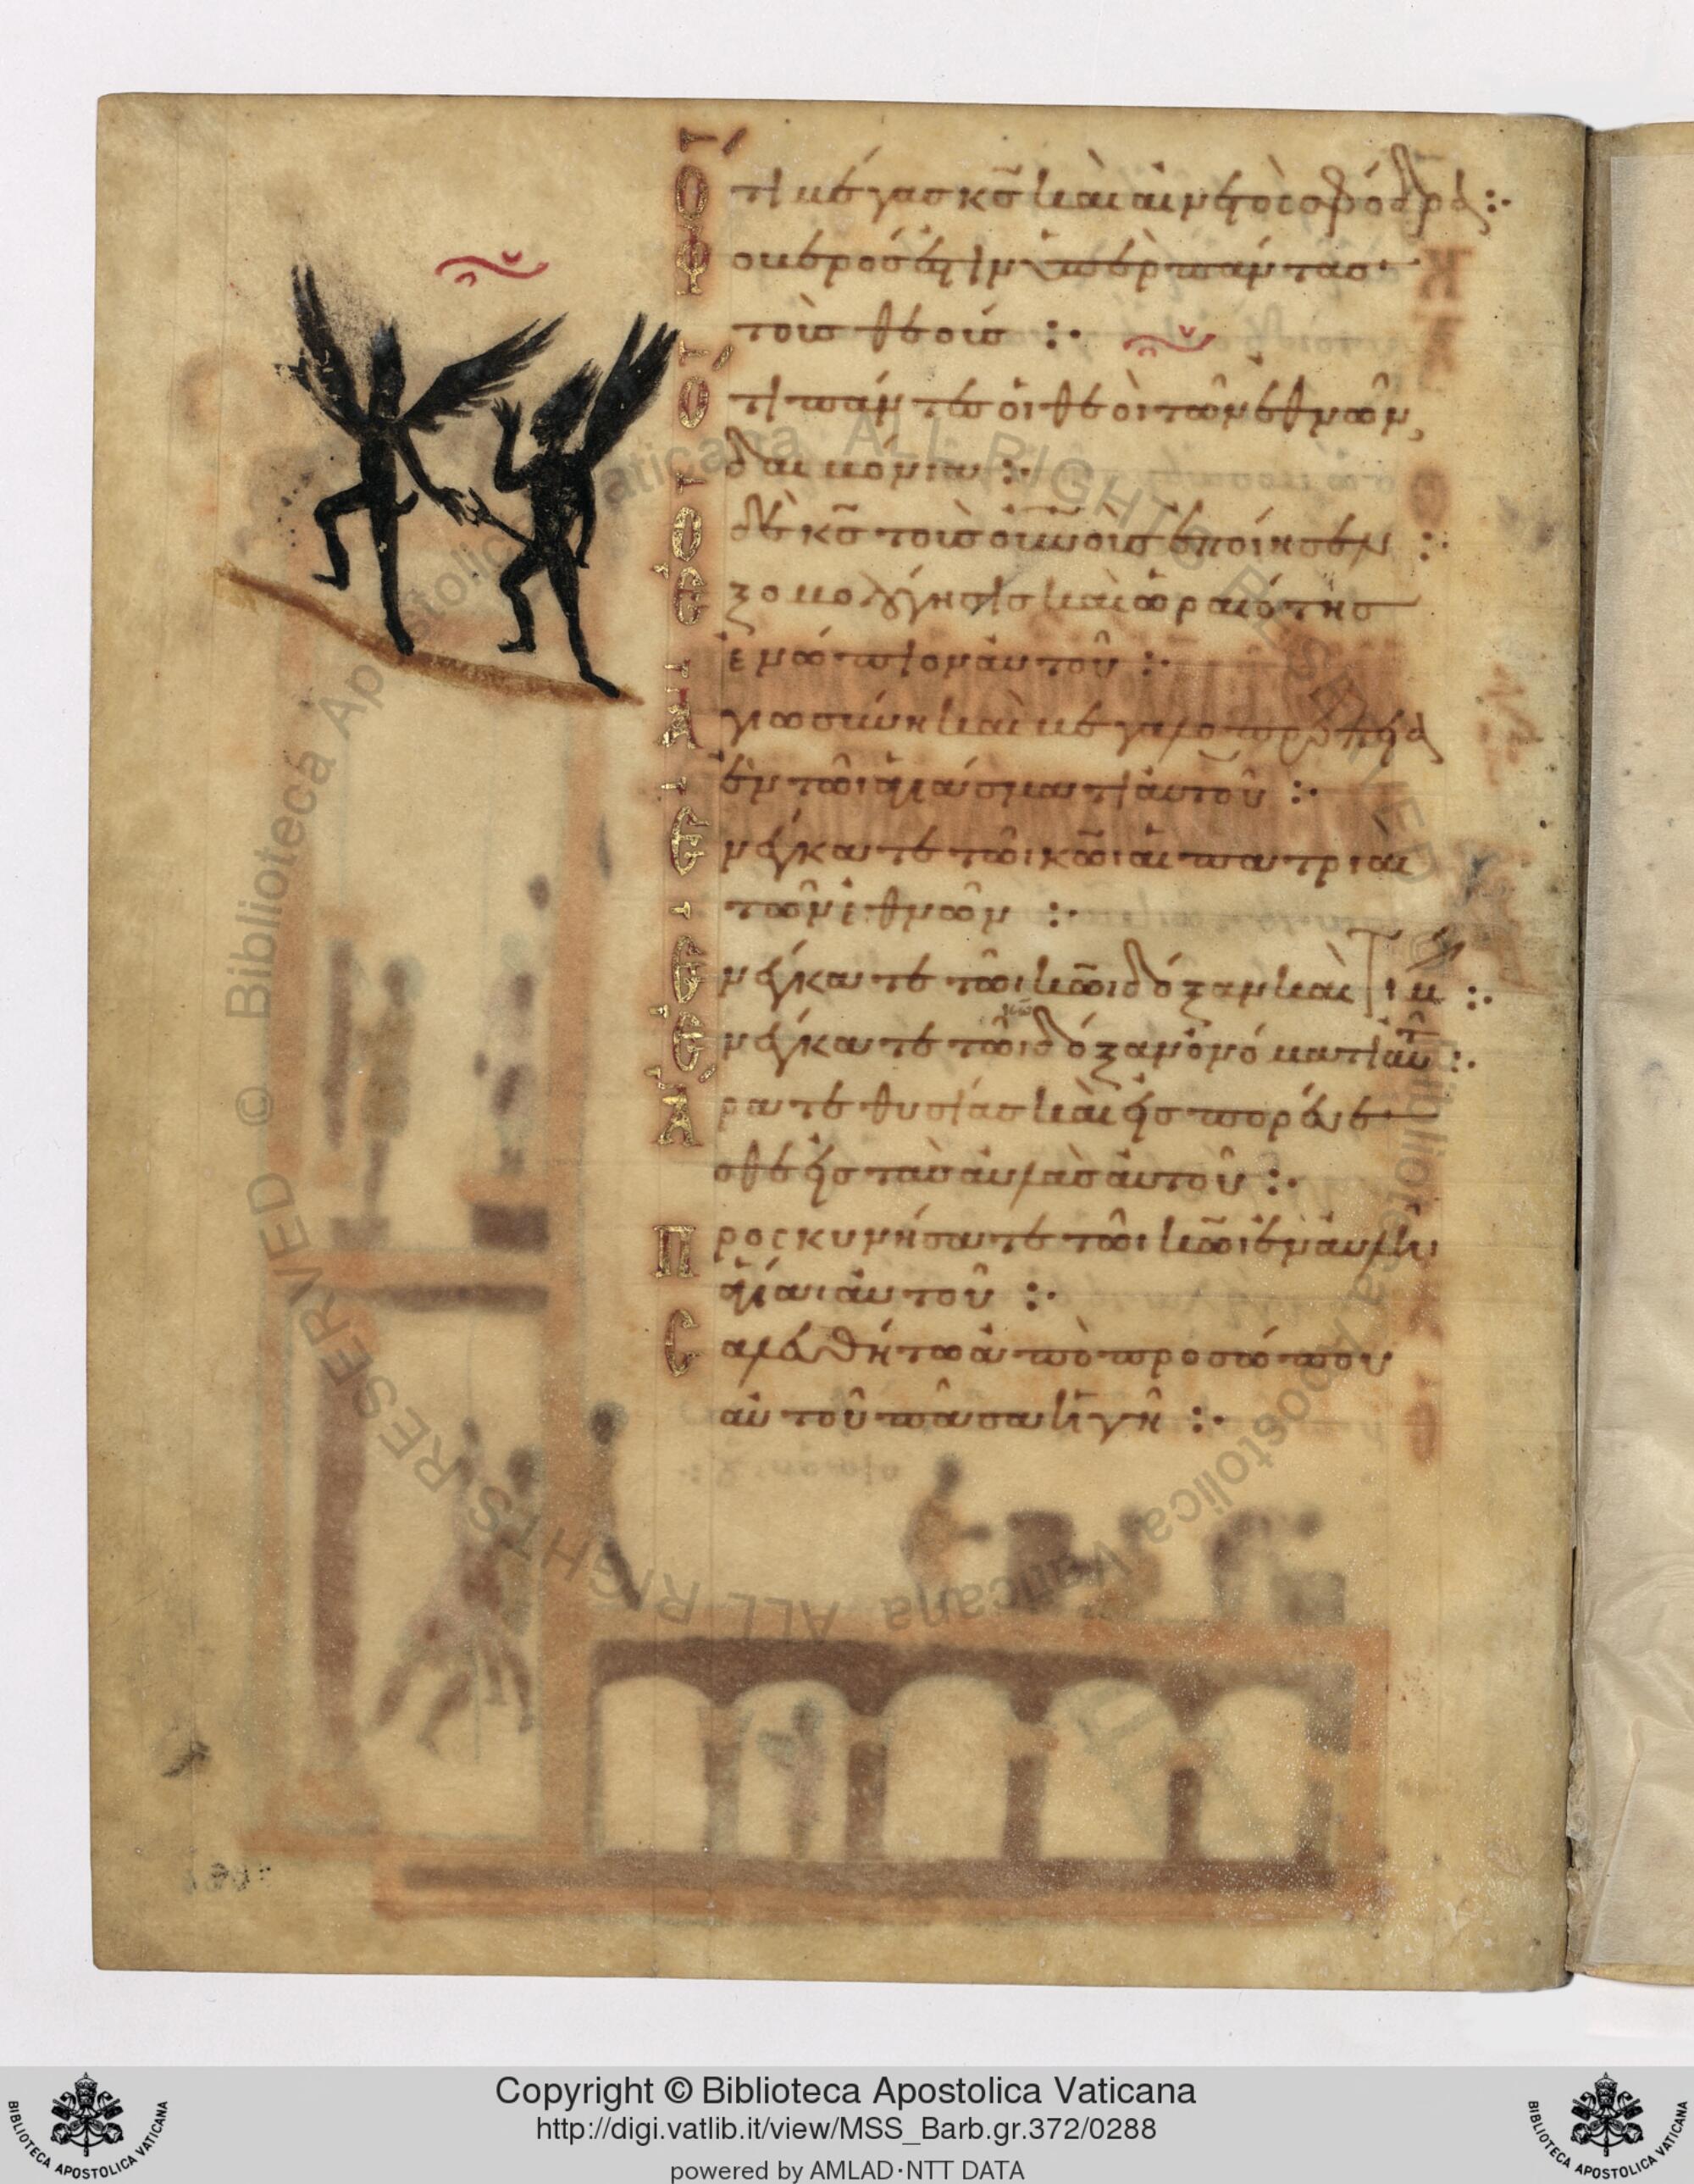 Ὅτι μέγας κ̅ς̅ καὶ αἰνετὸς σφόδρα :·
Φοβερός ἐστιν ὑπὲρ πάντας
τοὺς θεούς :·
Ὅτι πάντες οἱ θεοὶ τῶν ἐθνῶν
δαιμόνια :·
Ὁ δὲ κ̅ς̅ τοὺς οὐ̅ν̅οὺς ἐποίησεν :·
Ἐξομολόγησις καὶ ὡραιότης
ἐνώπιον αὐτοῦ :·
Ἁγιωσύνη καὶ μεγαλοπρέπεια
ἐν τῶι ἁγιάσματι αὐτοῦ :·
Ἐνέγκατε τῶι κ̅ω̅ι αἱ πατριαὶ
τῶν ἐθνῶν :·
Ἐνέγκατε τῶι κ̅ω̅ι δόξαν καὶ τιμήν :·
Ἐνέγκατε τῶι κ̅ω̅ δόξαν ὀνόματι αὐτοῦ :·
Ἄρατε θυσίας καὶ εἰσπορεύε
σθε εἰς τὰς αὐλὰς αὐτοῦ :·
Προσκυνήσατε τῶι κ̅ω̅ι ἐν αὐλῆι
ἁγίαι αὐτοῦ :·
Σαλευθήτω ἀπὸ προσώπου
αὐτοῦ πᾶσα ἡ γῆ :·
© Biblioteca Apostolica Vaticana ALL RIGHTS RESERVED
© Biblioteca Apostolica Vaticana ALL RIGHTS RESERVED
BIBLIOTECA APOSTOLICA VATICANA
Copyright © Biblioteca Apostolica Vaticana
http://digi.vatlib.it/view/MSS_Barb.gr.372/0288
powered by AMLAD·NTT DATA
BIBLIOTECA APOSTOLICA VATICANA